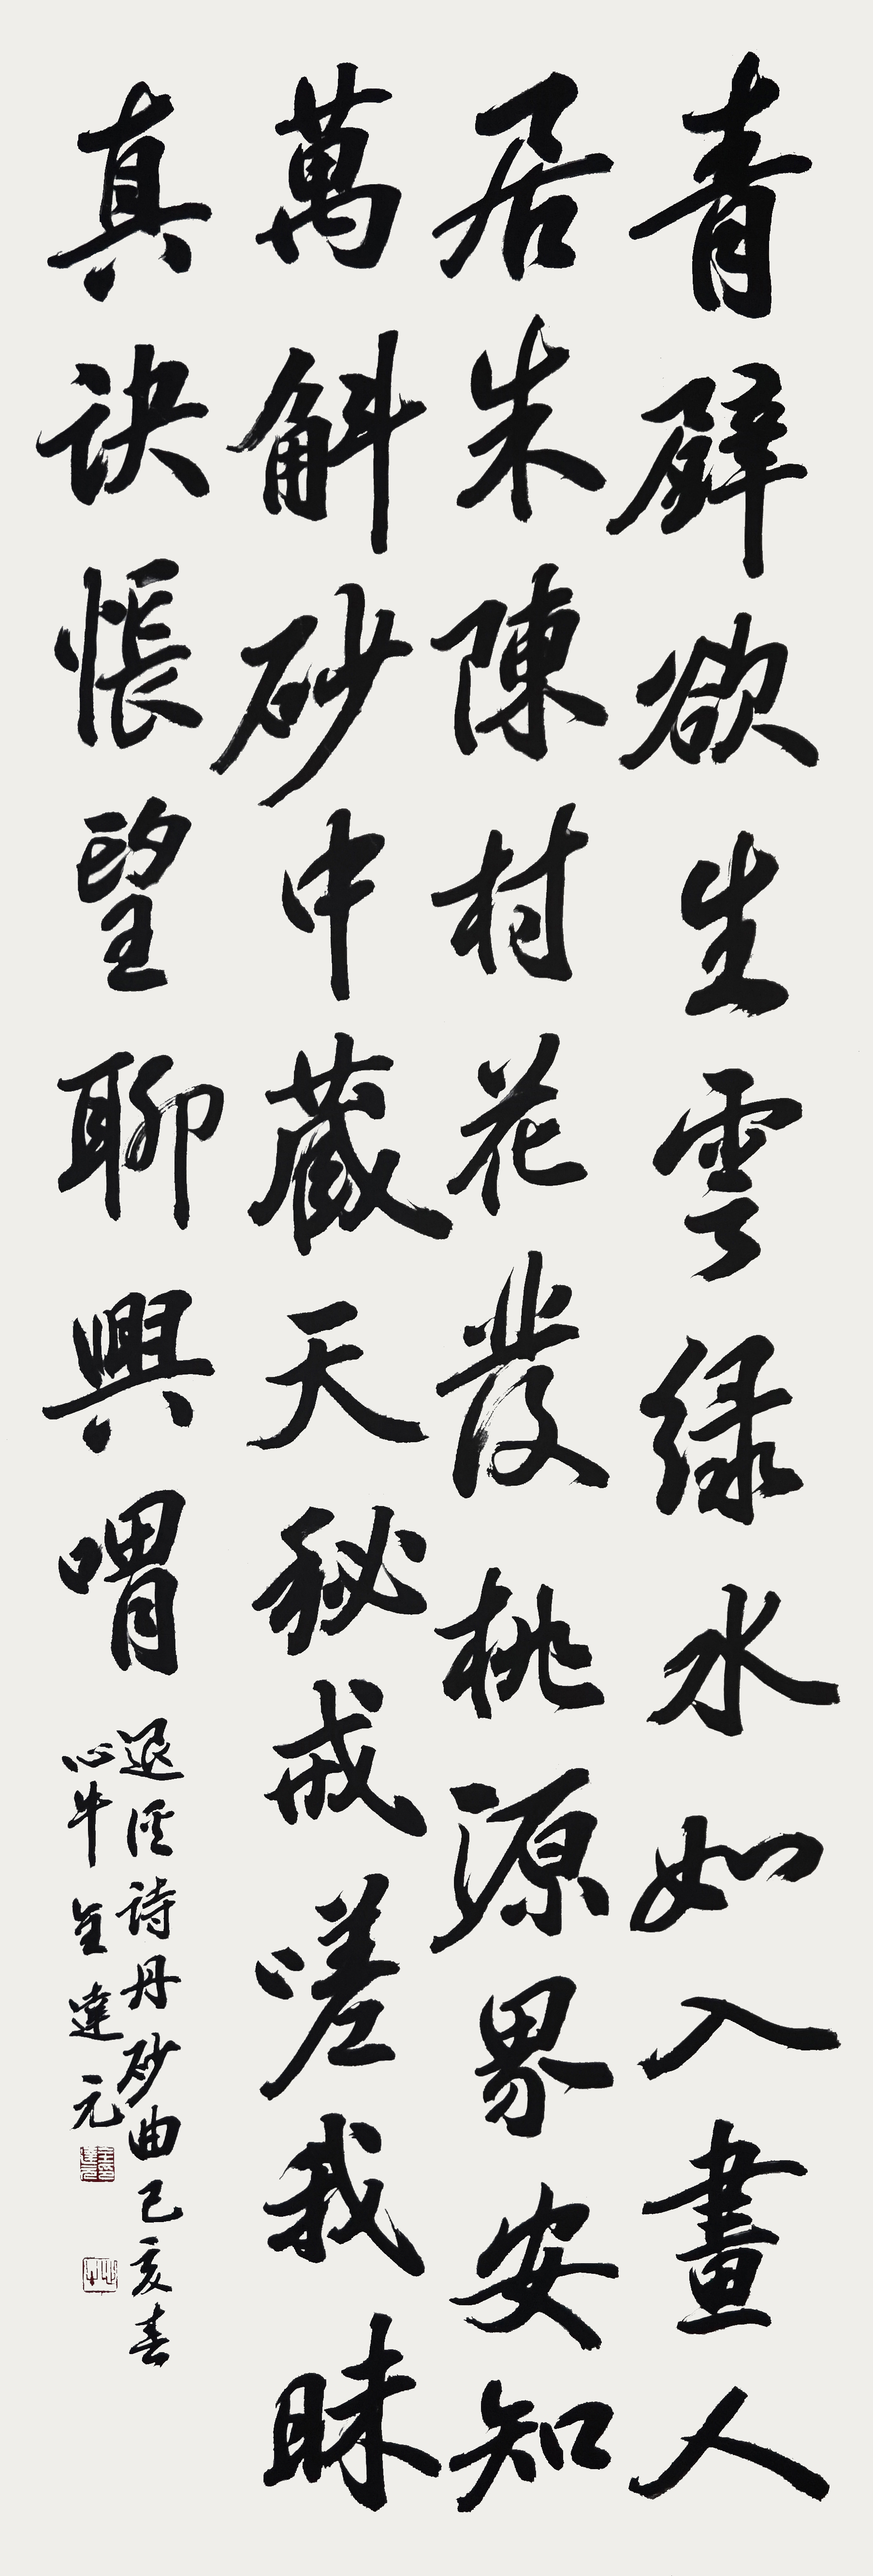 青壁欲生雲綠水如入畫人
居朱陳村花發桃源界安知
萬斛砂中藏天秘戒嗟我昧
真訣悵望聊興喟
退溪詩丹砂曲己亥春
心牛 金達元